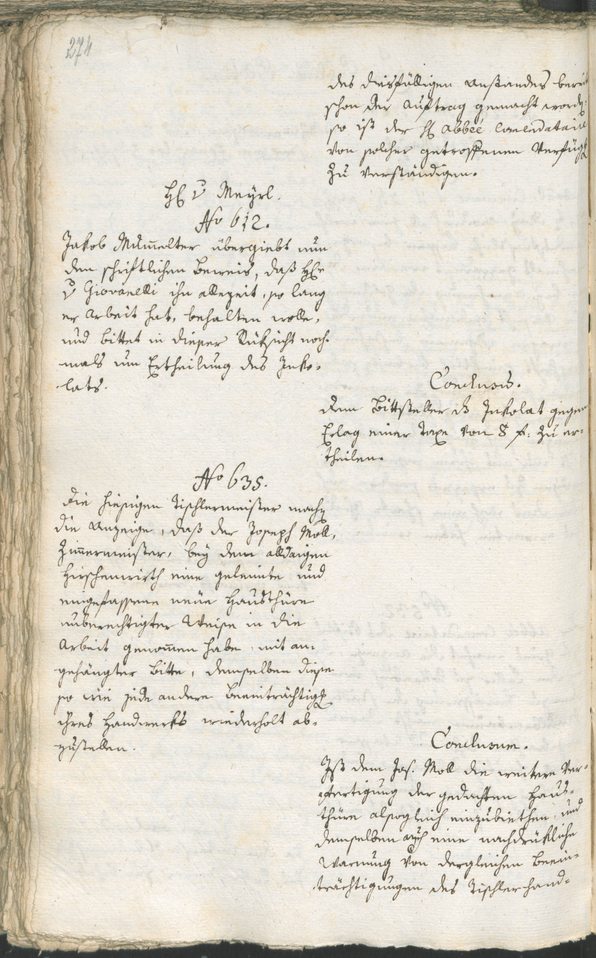 274
des diesfälligen Anstandes bereit
schon der Auftrag gemacht worden,
so ist der H. Abbée Comendataire
von solcher getroffenen Verfüg
zu verständigen.
H. v Meyrl.
No 612.
Jakob Mumelter übergiebt nun
den schriftlichen Beweis, daß H.
v Giovanelli ihn allezeit, so lang
er Arbeit hat, behalten wolle,
und bittet in dieser Rüksicht noch-
mals um Ertheilung des Inko-
lats.
Conclusum.
dem Bittsteller das Inkolat gegen
Erlag einer Taxe von 8 f. zu er-
theilen.
No 635.
Die hiesigen Tischlermeister machen
die Anzeige, daß der Joseph Moll,
Zimmermeister, bey dem alldaigen
Hirschenwirth eine geleimte und
eingefassene neue Hausthüre
unberechtigter Weise in die
Arbeit genommen habe, mit an-
gehängter Bitte, demselben diese
so wie jede andere Beeinträchtig
ihres Handwerks wiederholt ab-
zustellen.
Conclusum.
Ist dem Jos. Moll die weitere Ver-
fertigung der gedachten Haus-
thüre alsogleich einzubiethen, und
demselben auch eine nachdrükliche
Warnung von dergleichen Beein-
trächtigungen des Tischlerhand-